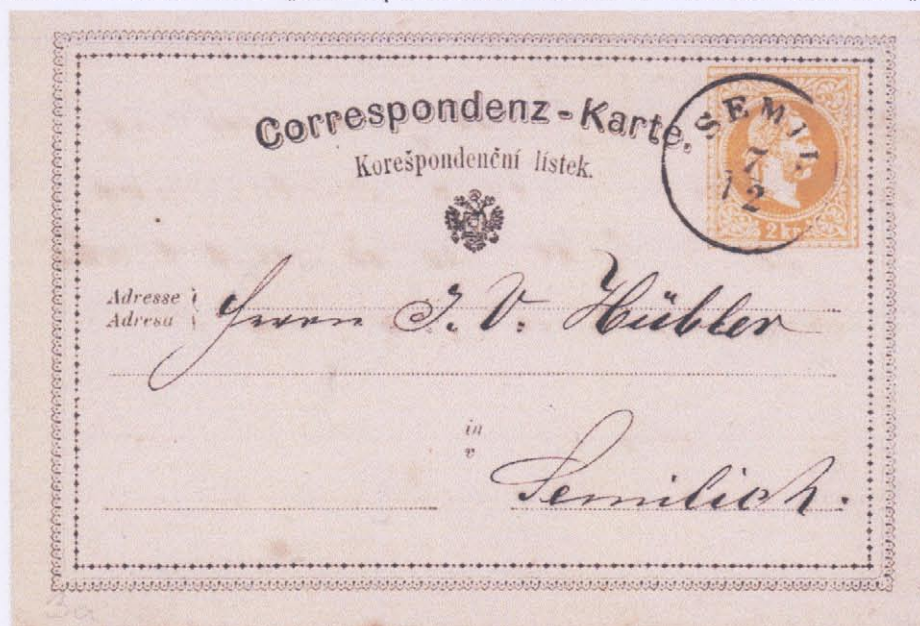 Correspondenz-Karte.
Korešpondenční lístek.
SEMIL
7
12
2 kr
Adresse
Adresa
Herrn J. V. Hübler
in
v
Semilich.